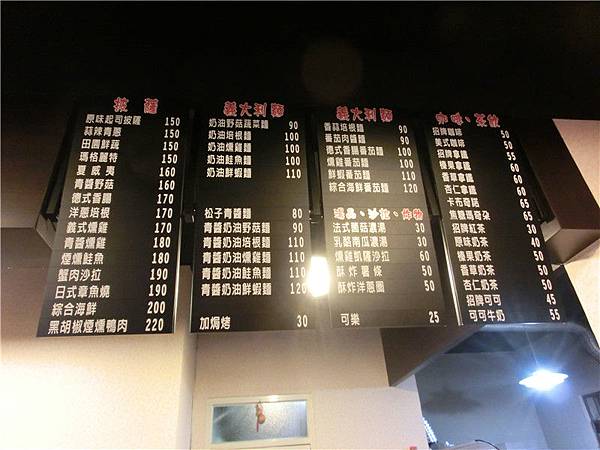 披薩
原味起司披薩 150
蒜辣青蔥 150
田園鮮蔬 150
瑪格麗特 150
夏威夷 160
青醬野菇 160
德式香腸 170
洋蔥培根 170
義式燻雞 170
青醬燻雞 180
煙燻鮭魚 180
蟹肉沙拉 190
日式章魚燒 190
綜合海鮮 200
黑胡椒煙燻鴨肉 220
義大利麵
奶油野菇蔬菜麵 90
奶油培根麵 100
奶油燻雞麵 100
奶油鮭魚麵 110
奶油鮮蝦麵 110
松子青醬麵 80
青醬奶油野菇麵 90
青醬奶油培根麵 110
青醬奶油燻雞麵 110
青醬奶油鮭魚麵 120
青醬奶油鮮蝦麵 120
加焗烤 30
義大利麵
香蒜培根麵 90
蕃茄肉醬麵 90
德式香腸蕃茄麵 100
燻雞蕃茄麵 100
鮮蝦蕃茄麵 110
綜合海鮮蕃茄麵 120
湯品、沙拉、炸物
法式蘑菇濃湯 30
乳酪南瓜濃湯 30
燻雞凱薩沙拉 60
酥炸薯條 50
酥炸洋蔥圈 50
可樂 25
咖啡、茶飲
招牌咖啡 50
美式咖啡 50
招牌拿鐵 55
榛果拿鐵 60
香草拿鐵 60
杏仁拿鐵 60
卡布奇諾 65
焦糖瑪奇朵 65
招牌紅茶 30
原味奶茶 40
榛果奶茶 50
香草奶茶 50
杏仁奶茶 50
招牌可可 45
可可牛奶 55